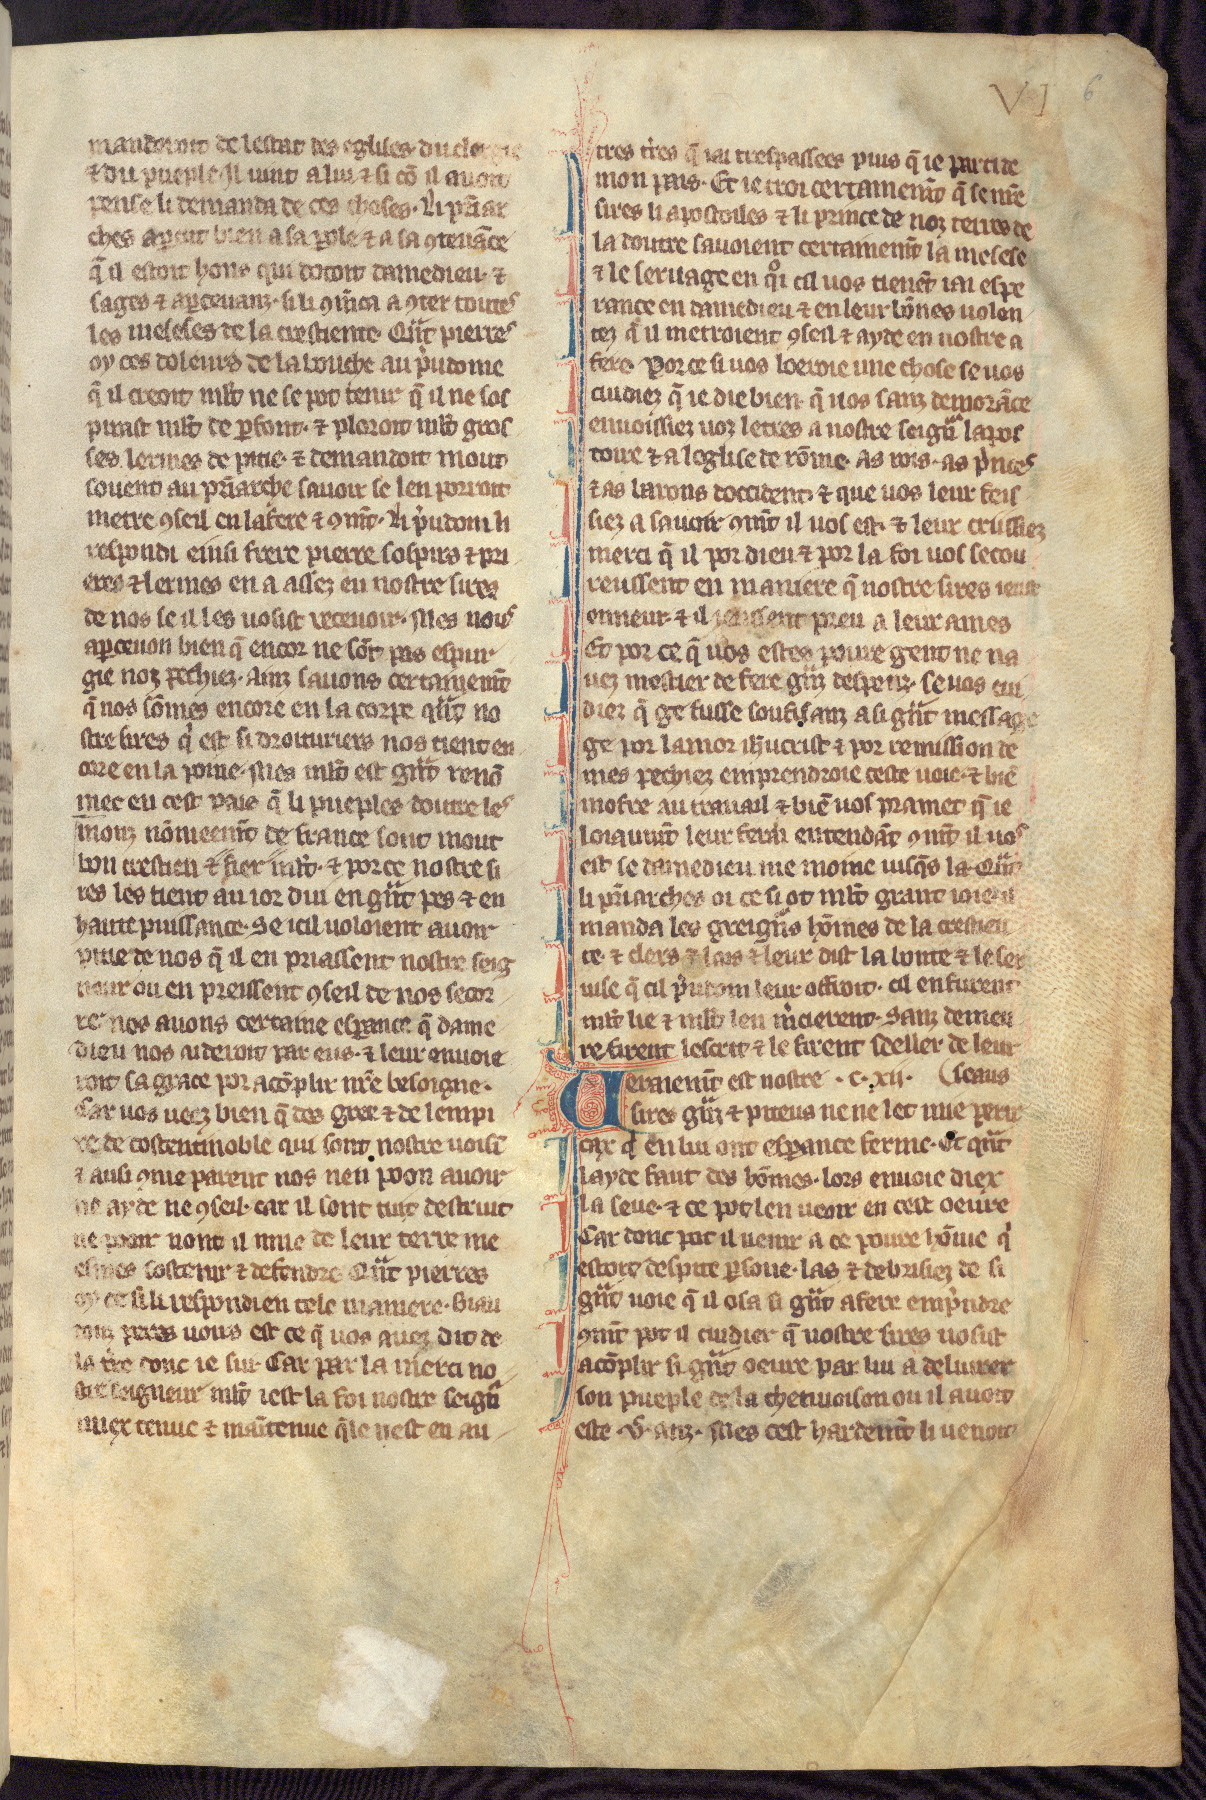 VI 6
mandoroit de lestat des eglises du clergie
⁊ du pueple. Il uint a lui ⁊ si cõ il auoit
pense li demanda de ces choses. Li pãar
ches aꝑcut bien a sa ꝑole ⁊ a sa ꝯtenãce
q̃ il estoit hons qui dotoit damedieu. ⁊
sages ⁊ aꝑceuanz. si li ꝯm̃ca a ꝯter toutes
les meseses de la crestiente. Qũt pierres
oy ces doleurs de la bouche au pͥudome
q̃ il creoit ml̃t ne se pot tenir q̃ il ne sos
pirast ml̃t de ꝑfont. ⁊ ploroit ml̃t gros
ses lermes de pitie. ⁊ demandoit mout
souent au pãarche sauoir se len porroit
metre ꝯseil en lafere ⁊ ꝯm̃t. Li pͥudom li
respondi einsi frere pierre sospirs ⁊ pri
eres ⁊ lermes en a assez eu nostre sires
de nos se il les uosist receuoir. Mes nous
aꝑceuon bien q̃ encor ne sõt pas espur
gie noz pechiez. Ainz sauons certainem̃t
q̃ nos sõmes encore en la corpe qũt no
stre sires qͥ est si droituriers nos tient en
core en la poine. Mes ml̃t est gr̃t renõ
mee en cest pais q̃ li pueples doutre les
monz nõmeem̃t de france sont mout
bon crestien ⁊ fier ml̃t. ⁊ por ce nostre si
res les tient au ior dui en gr̃t pes ⁊ en
haute puissance. Se icil uoloient auoir
pitie de nos q̃ il en priassent nostre seig
neur ou en preissent ꝯseil de nos secor
re nos auons certaine esꝑance q̃ dame
dieu nos aideroit par eus. ⁊ leur enuoie
roit sa grace por acõplir nr̃e besoigne.
Car uos ueez bien q̃ des grex ⁊ de lempi
re de costentinoble qui sont nostre uoisĩ
⁊ ausi ꝯme parent nos nen poon auoir
ne ayde ne ꝯseil. car il sont tuit destruit
ne pooir nont il mie de leur terre me
esmes sostenir ⁊ defendre. Qũt pierres
oy ce si li respondi en tele maniere. Biau
douz peres uous est ce q̃ uos auez dit de
la tr̃e donc ie sui. Car par la merci no
stre seigneur ml̃t iest la foi nostre seigñ
miex tenue ⁊ maĩtenue q̃le nest en au
tres tr̃es q̃ iai trespassees puis q̃ ie parti de
mon pais. Et ie croi certainem̃t q̃ se nr̃e
sires li apostoiles ⁊ li prince de noz terres de
la doutre sauoient certainem̃t la mesese
⁊ le seruage en qͦi cil uos tienẽt iai espe
rance en damedieu ⁊ en leur bõnes uolen
tez q̃ il metroient ꝯseil ⁊ ayde en uostre a
fere. Por ce si uos loeroie une chose se uos
cuidiez q̃ ie die bien. q̃ uos sanz demorãce
enuoissiez uoz letres a nostre seigñ lapos
toire ⁊ a leglise de rõme. as rois. as pͥnces
⁊ as barons doccident. ⁊ que uos leur feis
siez a sauoir ꝯm̃t il uos est. ⁊ leur criissiez
merci q̃ il por dieu ⁊ por la foi uos secou
reussent en maniere q̃ nostre sires ieust
enneur. ⁊ il ieussent preu a leur ames
Et por ce q̃ uos estes poure gent ne na
uez mestier de fere gr̃z despens. se uos cui
diez q̃ ge fusse soufisanz a si gr̃t message
ge por lamor ih̃ucrist ⁊ por remission de
mes pechiez emprendroie ceste uoie. ⁊ biẽ
mofre au trauail ⁊ biẽ uos pramet q̃ ie
loiaum̃t leur ferai entendãt ꝯm̃t il uos
est se damedieu me moine iusq̃s la. Qũt
li pãarches oi ce si ot ml̃t grant ioie. il
manda les greignˢ hõmes de la crestien
te. ⁊ clers ⁊ lais ⁊ leur dist la bonte ⁊ le ser
uise q̃ cil pͥudom leur offroit. cil en furent
ml̃t lie ⁊ ml̃t len m̃cierent. Sanz demeu
re firent lescrit ⁊ le firent seeller de leur
Veraiem̃t est nostre .c.xii. (seaus
sires gr̃z ⁊ piteus ne ne let mie perir
car qͥ en lui ont esꝑance ferme. Et qũt
layde faut des hõmes. lors enuoie diex
la seue. ⁊ ce pot len ueoir en cest oeure
Car donc pot il uenir a ce poure hõme qͥ
estoit despite ꝑsone. las ⁊ debrisiez de si
gr̃t uoie q̃ il osa si gr̃t afere empͥndre
ꝯm̃t pot il cuidier q̃ nostre sires uosist
acõplir si gr̃t oeure par lui a deliurer
son pueple de la chetiuoison ou il auoit
este .v. anz. Mes cest hardem̃t li uenoit